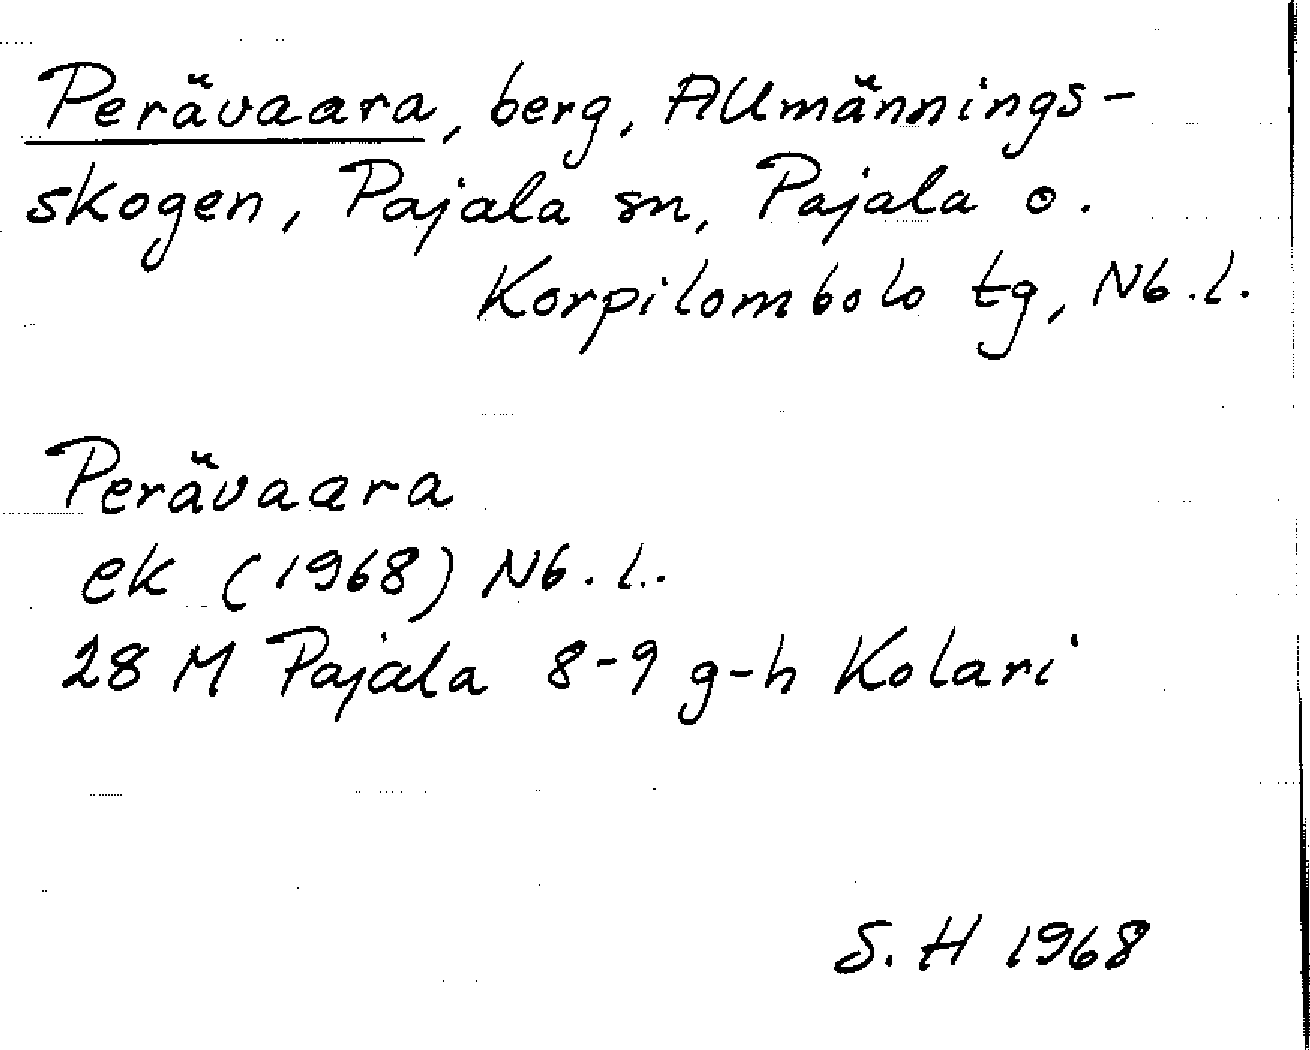 Perävaara, berg, Allmännings-
skogen, Pajala sn, Pajala o.
Korpilombolo tg, Nb.l.
Perävaara
ek (1968) Nb.l.
28 M Pajala 8-9 g-h Kolari
S.H 1968